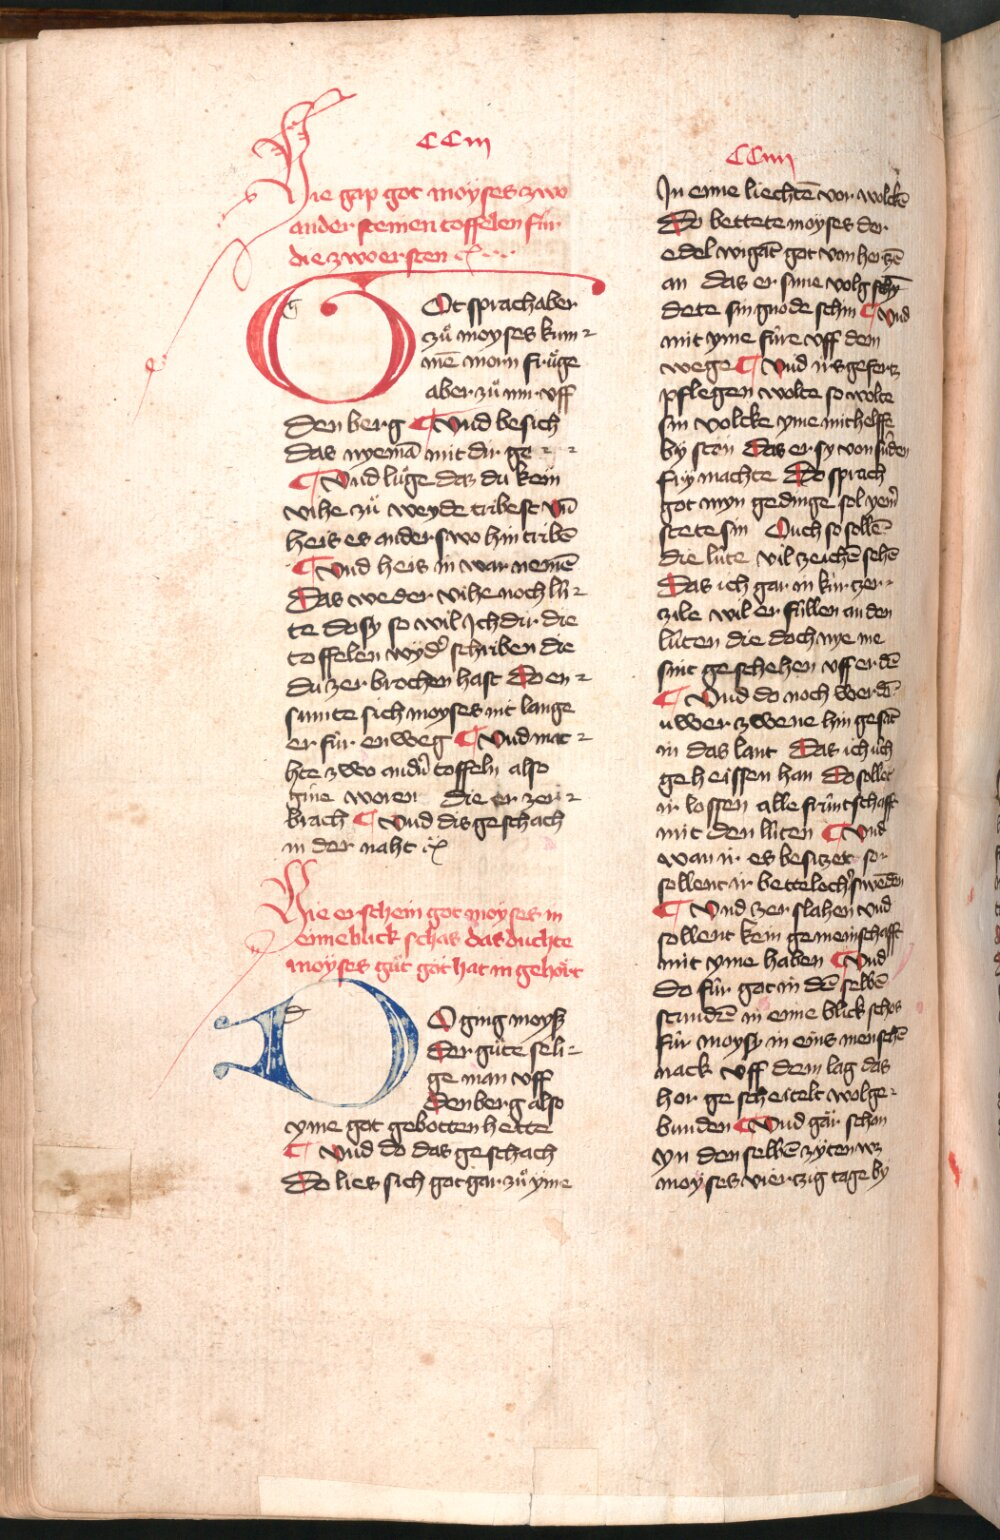 CCiii
Hie gap got moyses zwo
ander steinen toffelen fúr
die zwo ersten
GOt sprach aber
zů moyses kum
mē morn frůge
aber zů mir vff
den berg Vnd besich
das nyemā mit dir ge
Vnd lůge das du kein
vihe zů weyde tribest vn̄
heis es anderswo hin tribē
Vnd heis in war nemē
Das weder vihe noch lú
te do sy so wil Ich dir die
toffelen wyd' schriben die
du zerbrochen hast Do en
sumte sich moyses nit lange
er fúr enweg Vnd mac
hte zwo and'n toffeln also
gine woren die er zer
brach Vnd dis geschach
in der naht
Hie erschein got moyses in
eime blick schas das duchte
moyses gůt got hat in gehört
DO ging moyses
Der gůte seli
ge man vff
den berg also
yme got gebotten hette
Vnd do das geschach
Do lies sich got gar zů yme
CCiiii
In eime liechtē vor wolckē
Do bettete moyses der
edel wigāt got von herzē
an das er sime volg schy
dete sin gnode schin Vnd
mit yme fúre vff dem
wege Vnd irs gefertz
pflegen wolte so wolte
sin volcke yme mit helffe
by ston Das er sy von súnden
fry machte Do sprach
got myn gedinge sol yem'
stete sin Ouch so sollē
die lúte vil zeichē sehē
Das ich gar in kúrtzer
zile wil erfúllen an den
lúten die doch nye me
sint geschehen vff erdē
Vnd do noch werdē
uwer zwene hin gesāt
in das lant Das ich úch
geheissen han Do sollet
ir lossen alle frúntschafft
mit den lúten Vnd
wan ir es besitzet so
sollent ir bettelöch's wenden
Vnd zerslahen vnd
sollent kein gemeinschafft
mit yme haben Vnd
do fúr got in dē selbē
stundē in eime blick schos
fúr moysy in eins menschē
nack vff dem lag das
hor gescheitelt wolge
bunden Vnd gar schon
yn den selbē zyten wz
moyses viertzig tage by